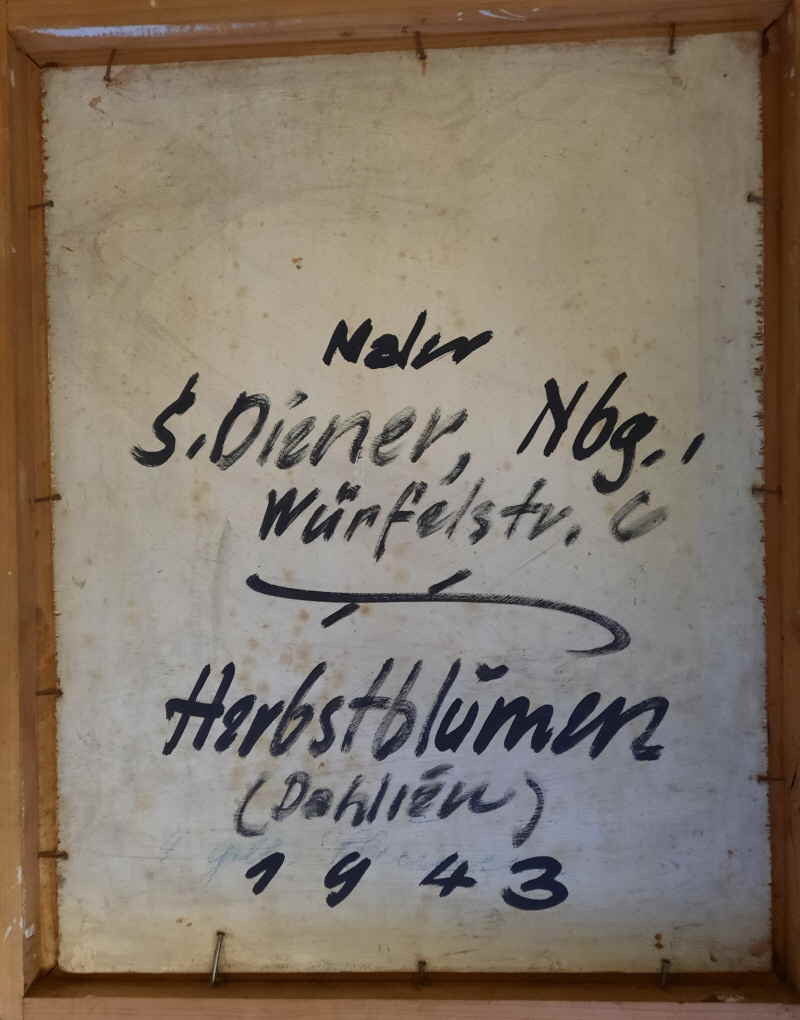 Maler
S. Diener, Nbg.,
Würfelstr. 6
Herbstblŭmen
(Dahlien)
1943